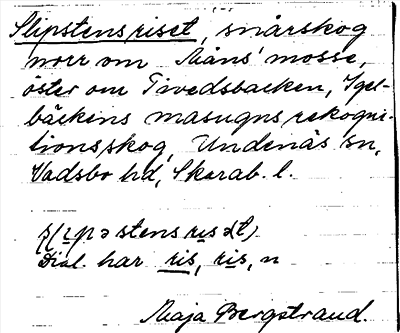 Slipstensriset, snårskog
norr om Måns' mosse,
öster om Tivedsbacken, Igel-
bäckens masugns rekogni-
tionsskog, Undenäs sn,
Vadsbo hd, Skarab. l.
stensris
Dial. har ris, ris, n
Maja Bergstrand.